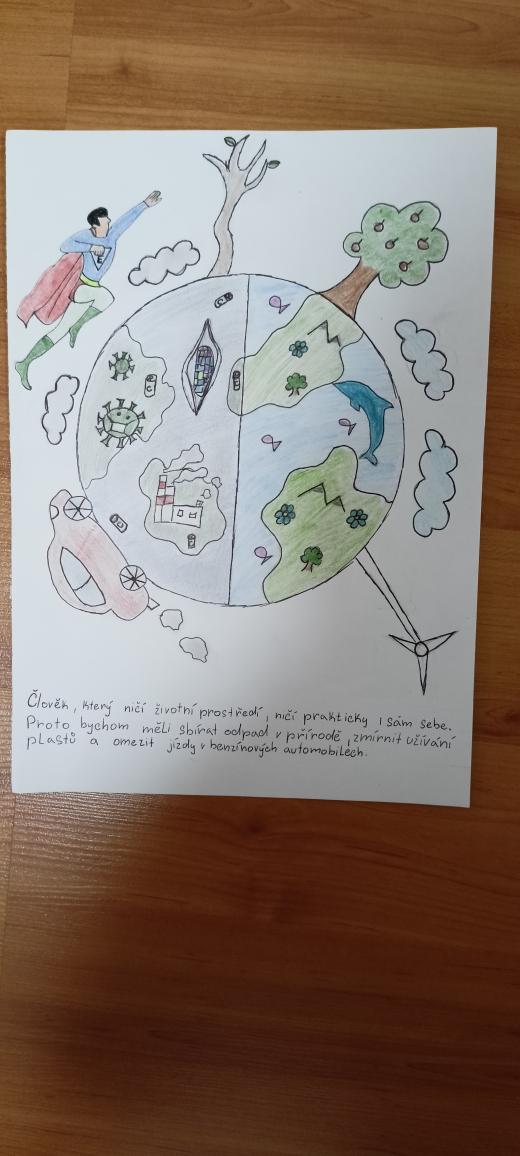 E
C
Člověk, který ničí životní prostředí, ničí prakticky i sám sebe.
Proto bychom měli sbírat odpad v přírodě, zmírnit užívání
plastů a omezit jízdy v benzínových automobilech.